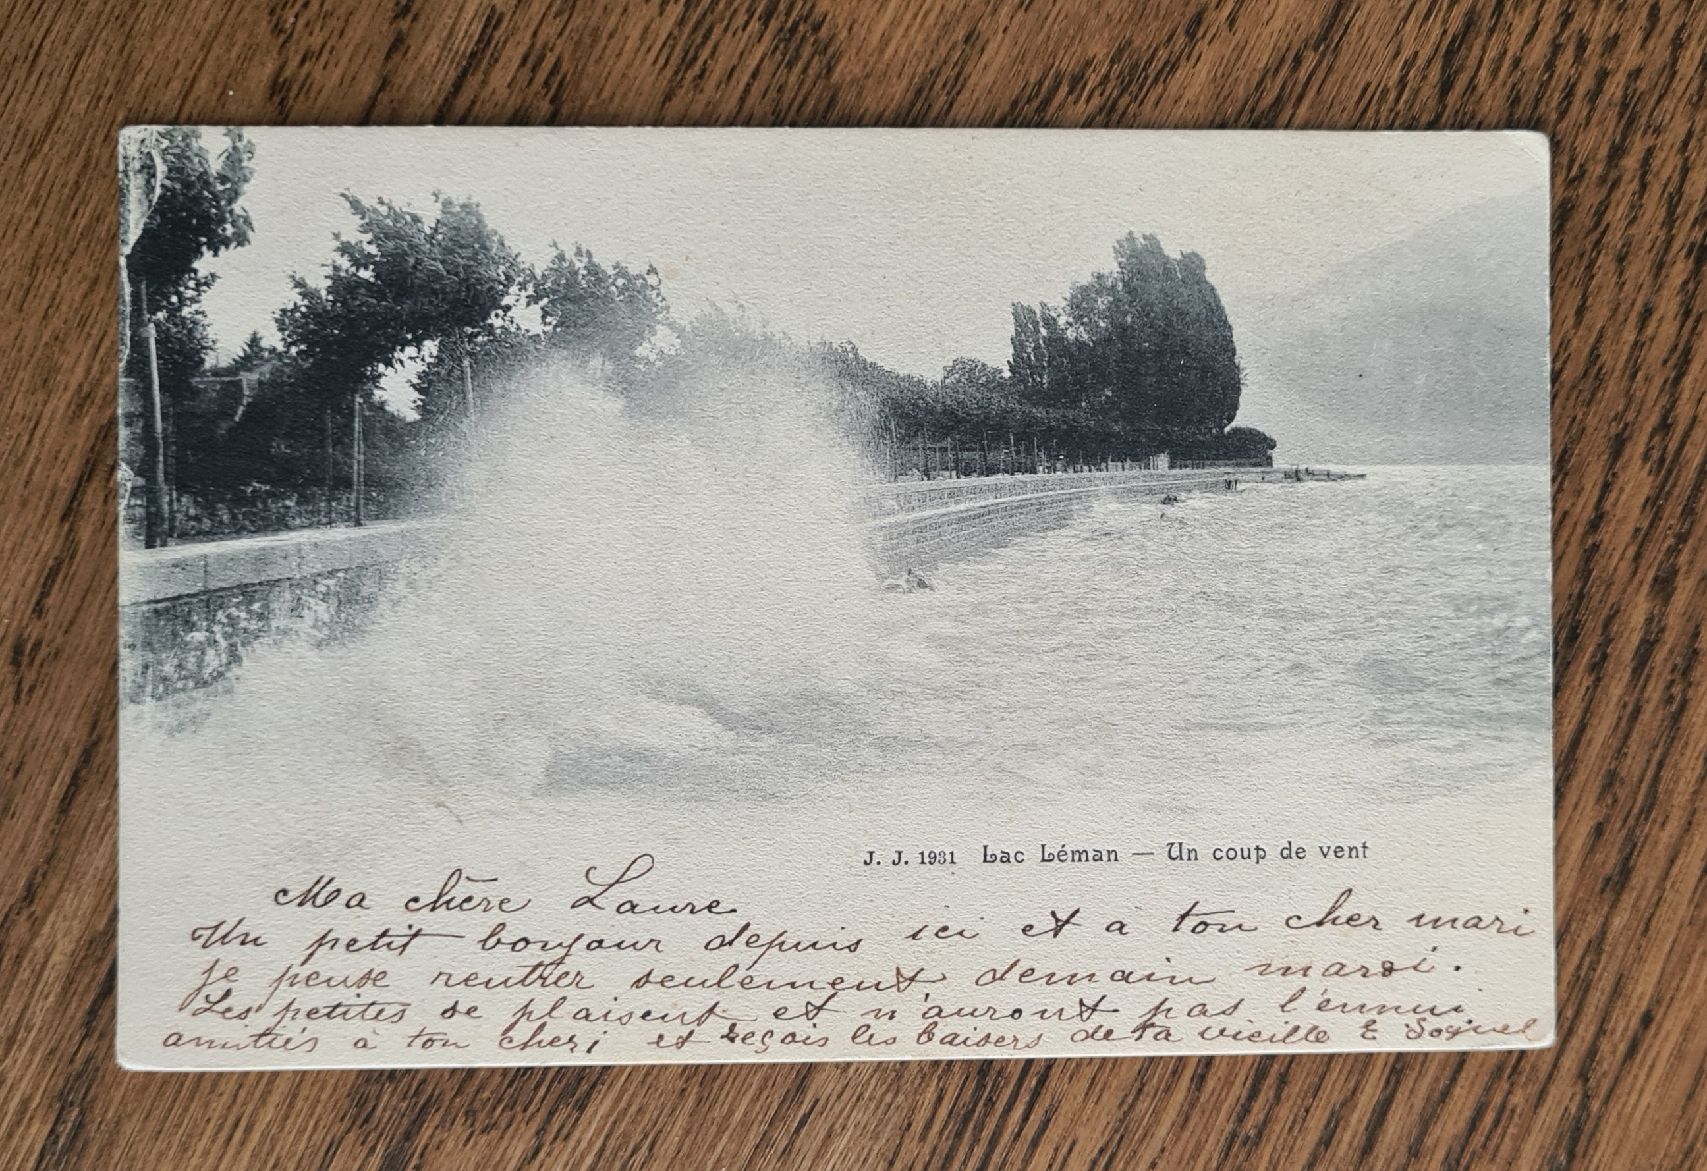 J. J. 1931 Lac Léman — Un coup de vent
Ma chère Laure
Un petit bonjour depuis ici et a ton cher mari
je pense rentrer seulement demain mardi.
Les petites se plaisent et n'auront pas l'ennui
amitiés à ton cheri et reçois les baisers de ta vieille E